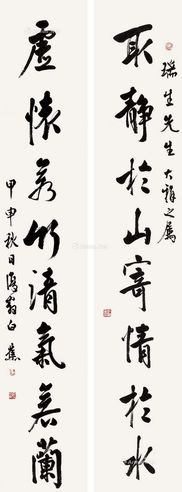 瑞生先生大雅之屬
取靜於山寄情於水
虛懷若竹清氣若蘭
甲申秋日復翁白蕉